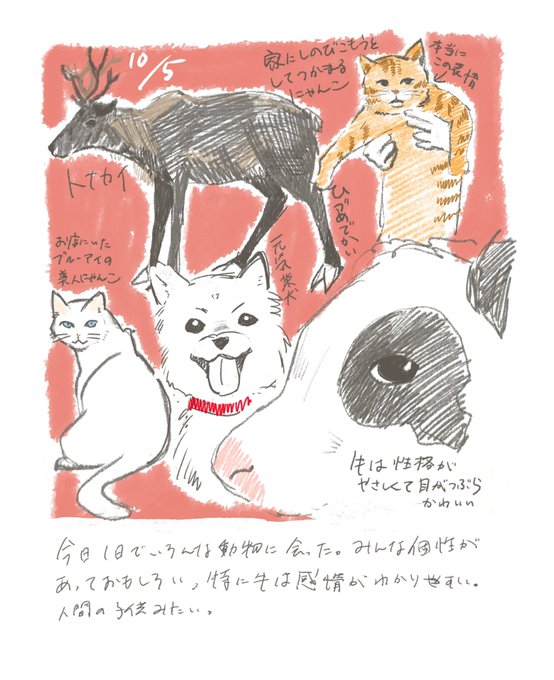 10/5
家にしのびこもうと
してつかまる
にゃんこ
本当に
この表情
トナカイ
ひづめでかい
お店にいた
ブルーアイの
美人にゃんこ
元気柴犬
牛は性格が
やさしくて目がつぶら
かわいい
今日1日でいろんな動物に会った。みんな個性が
あっておもしろい、特に牛は感情がわかりやすい。
人間の子供みたい。